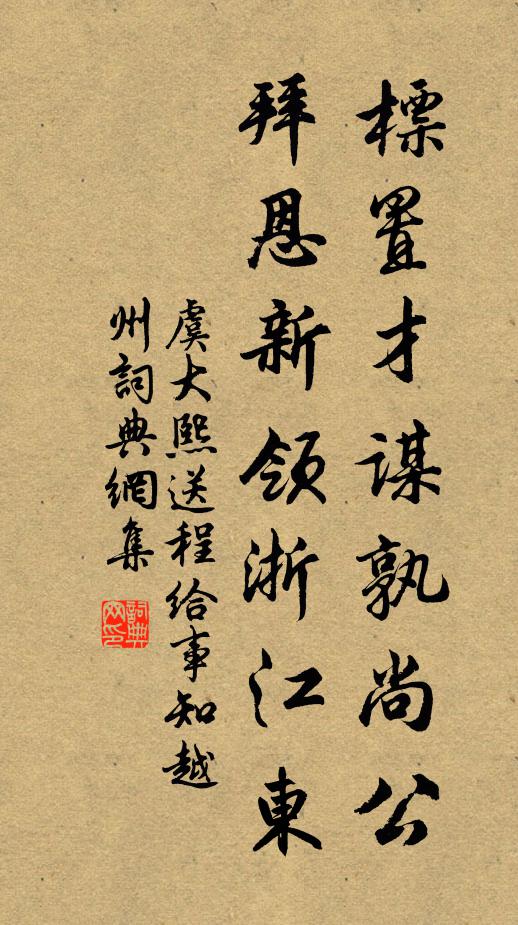 標置才謀孰尚公
拜恩新領浙江東
虞大熙送程給事知越
州詞典網集
詞典網印